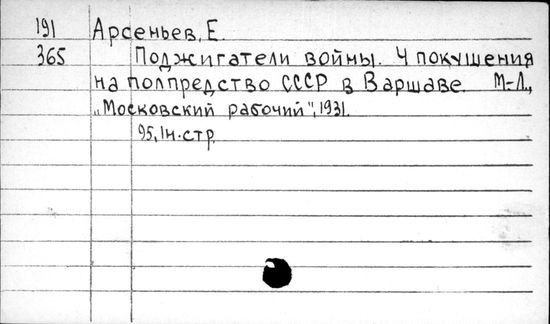 191 Арсеньев, Е.
365 Поджигатели войны. 4 покушения
на полпредство СССР в Варшаве. М-Л.,
„Московский рабочий", 1931.
95, 1н. стр.